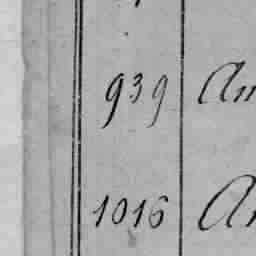 939 An
1016 An